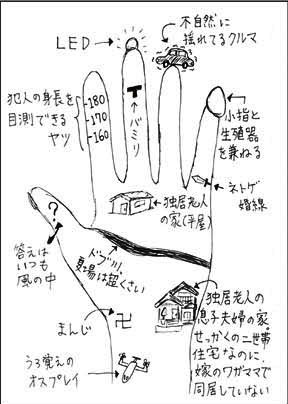 LED→
不自然に
揺れてるクルマ
犯人の身長を
目測できる
ヤツ
-180
-170
-160
T
↑
バミリ
小指と
生殖器
を
兼ねる
ネトゲ
婚線
←独居老人
の家(平屋)
?
答えは
いつも
風の中
ドブ川
夏場は超くさい
まんじ
卍
独居老人の
息子夫婦の家。
せっかくの二世帯
住宅なのに、
嫁のワガママで
同居していない
うろ覚えの
オスプレイ